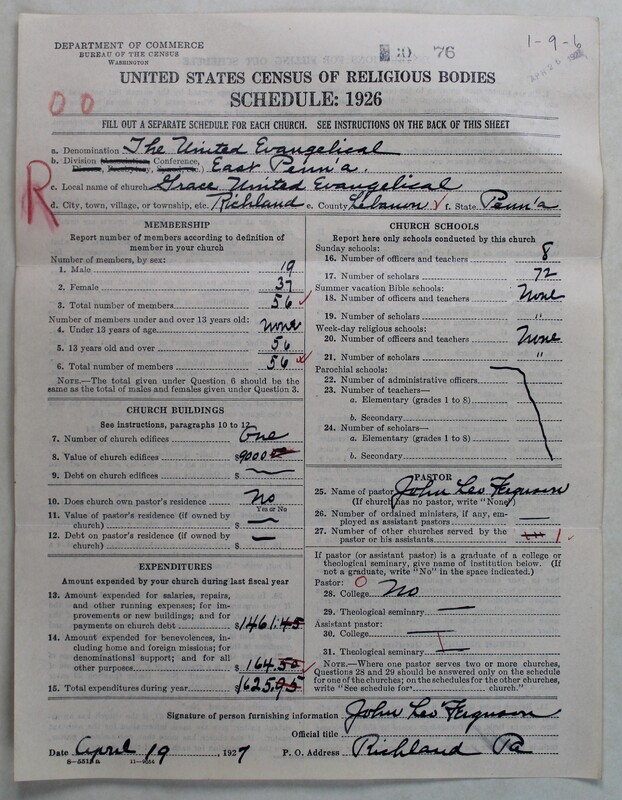 DEPARTMENT OF COMMERCE
BUREAU OF THE CENSUS
WASHINGTON
76
1-9-6
UNITED STATES CENSUS OF RELIGIOUS BODIES
SCHEDULE: 1926
00
FILL OUT A SEPARATE SCHEDULE FOR EACH CHURCH. SEE INSTRUCTIONS ON THE BACK OF THIS SHEET
R
a. Denomination The United Evangelical
b. Division (Association, Conference, East Penn'a.
c. Local name of church Grace United Evangelical
d. City, town, village, or township, etc. Richland e. County Lebanon f. State Penn'a
MEMBERSHIP
Report number of members according to definition of
member in your church
Number of members, by sex:
1. Male 19
2. Female 37
3. Total number of members 56
Number of members under and over 13 years old:
4. Under 13 years of age None
5. 13 years old and over 56
6. Total number of members 56
NOTE.—The total given under Question 6 should be the
same as the total of males and females given under Question 3.
CHURCH BUILDINGS
See instructions, paragraphs 10 to 12
7. Number of church edifices One
8. Value of church edifices $9000
9. Debt on church edifices $
10. Does church own pastor's residence? No
Yes or No
11. Value of pastor's residence (if owned by
church) $
12. Debt on pastor's residence (if owned by
church) $
EXPENDITURES
Amount expended by your church during last fiscal year
13. Amount expended for salaries, repairs,
and other running expenses; for im-
provements or new buildings; and for
payments on church debt $1461.45
14. Amount expended for benevolences, in-
cluding home and foreign missions; for
denominational support; and for all
other purposes 164.50
15. Total expenditures during year $1625.95
CHURCH SCHOOLS
Report here only schools conducted by this church
Sunday schools:
16. Number of officers and teachers 8
17. Number of scholars 72
Summer vacation Bible schools:
18. Number of officers and teachers None
19. Number of scholars "
Week-day religious schools:
20. Number of officers and teachers None
21. Number of scholars "
Parochial schools:
22. Number of administrative officers
23. Number of teachers—
a. Elementary (grades 1 to 8)
b. Secondary
24. Number of scholars—
a. Elementary (grades 1 to 8)
b. Secondary
PASTOR
25. Name of pastor John Leo Ferguson
(If church has no pastor, write "None")
26. Number of ordained ministers, if any, em-
ployed as assistant pastors
27. Number of other churches served by the
pastor or his assistants 1
If pastor (or assistant pastor) is a graduate of a college or
theological seminary, give name of institution below. (If
not a graduate, write "No" in the space indicated.)
Pastor: 0
28. College No
29. Theological seminary
Assistant pastor:
30. College
31. Theological seminary
NOTE.—Where one pastor serves two or more churches,
Questions 28 and 29 should be answered only on the schedule
for one of the churches; on the schedules for the other churches,
write "See schedule for church."
Signature of person furnishing information John Leo Ferguson
Official title
Date April 19, 1927 P. O. Address Richland Pa